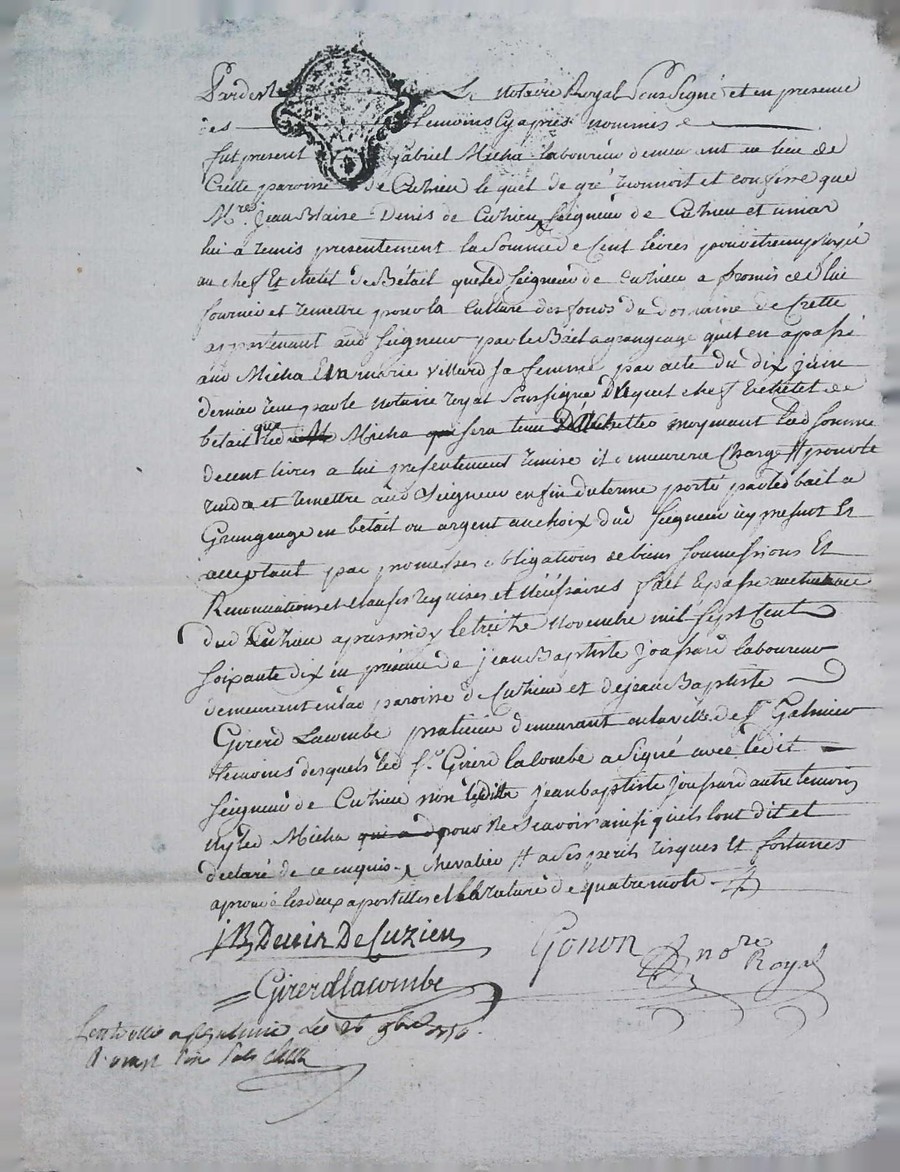 Pardevt Le Notaire Royal Soussigné et en presence
des temoins Cy après nommés
fut present Gabriel Micha laboureur demeurant au lieu de
Crette paroisse de Cuzieu lequel de gré reconnoit et confesse que
Mre jean Blaise Denis de Cuzieu seigneur de Cuzieu et
lui a remis presentement la Somme de Cent livres pour être employée
au chef Et chetel de Bétail que led seigneur de Cuzieu a promis de lui
fournir et remettre pour la Culture des fonds du domaine de Crette
appartenant aud Seigneur par le Bail a grangeage qu'il en a passé
aud Micha Et marie Villard sa femme par acte du dix juin
dernier reçu par le notaire royal Soussigné Duquel chef Et chetel de
bétail que led Micha sera tenu moyenant lad somme
de cent livres a lui presentement remise il demeurera Chargé # pour le
rendre et remettre aud Seigneur en fin du terme porté par led bail a
Grangeage en bétail ou argent au choix dud Seigneur icy present Et
acceptant par promesses obligations de biens soumissions Et
Renonciations et clauses requises et nécéssaires fait Et passé au chateau
dud Cuzieu apres midy le treize novembre mil sept Cent
soixante dix en présence de jean Baptiste joussard laboureur
demeurant en lad paroisse de Cuzieu et de jean Baptiste
Girerd Lacombe praticien demeurant en la ville de St Galmier
temoins desquels led Sr Girerd lacombe a signé avec ledit
seigneur de Cuzieu non ledit jean baptiste joussard autre temoin
ny led Micha pour ne scavoir ainsi quils l'ont dit et
declaré de ce enquis chevalier # a ses perils risques Et fortunes
aprouvé les deux apostilles et la rature de quatre mots
jB Denis De Cuzieu
Gonon nore Royal
Girerd lacombe
Controllé a St Galmier le 26 9bre 1770